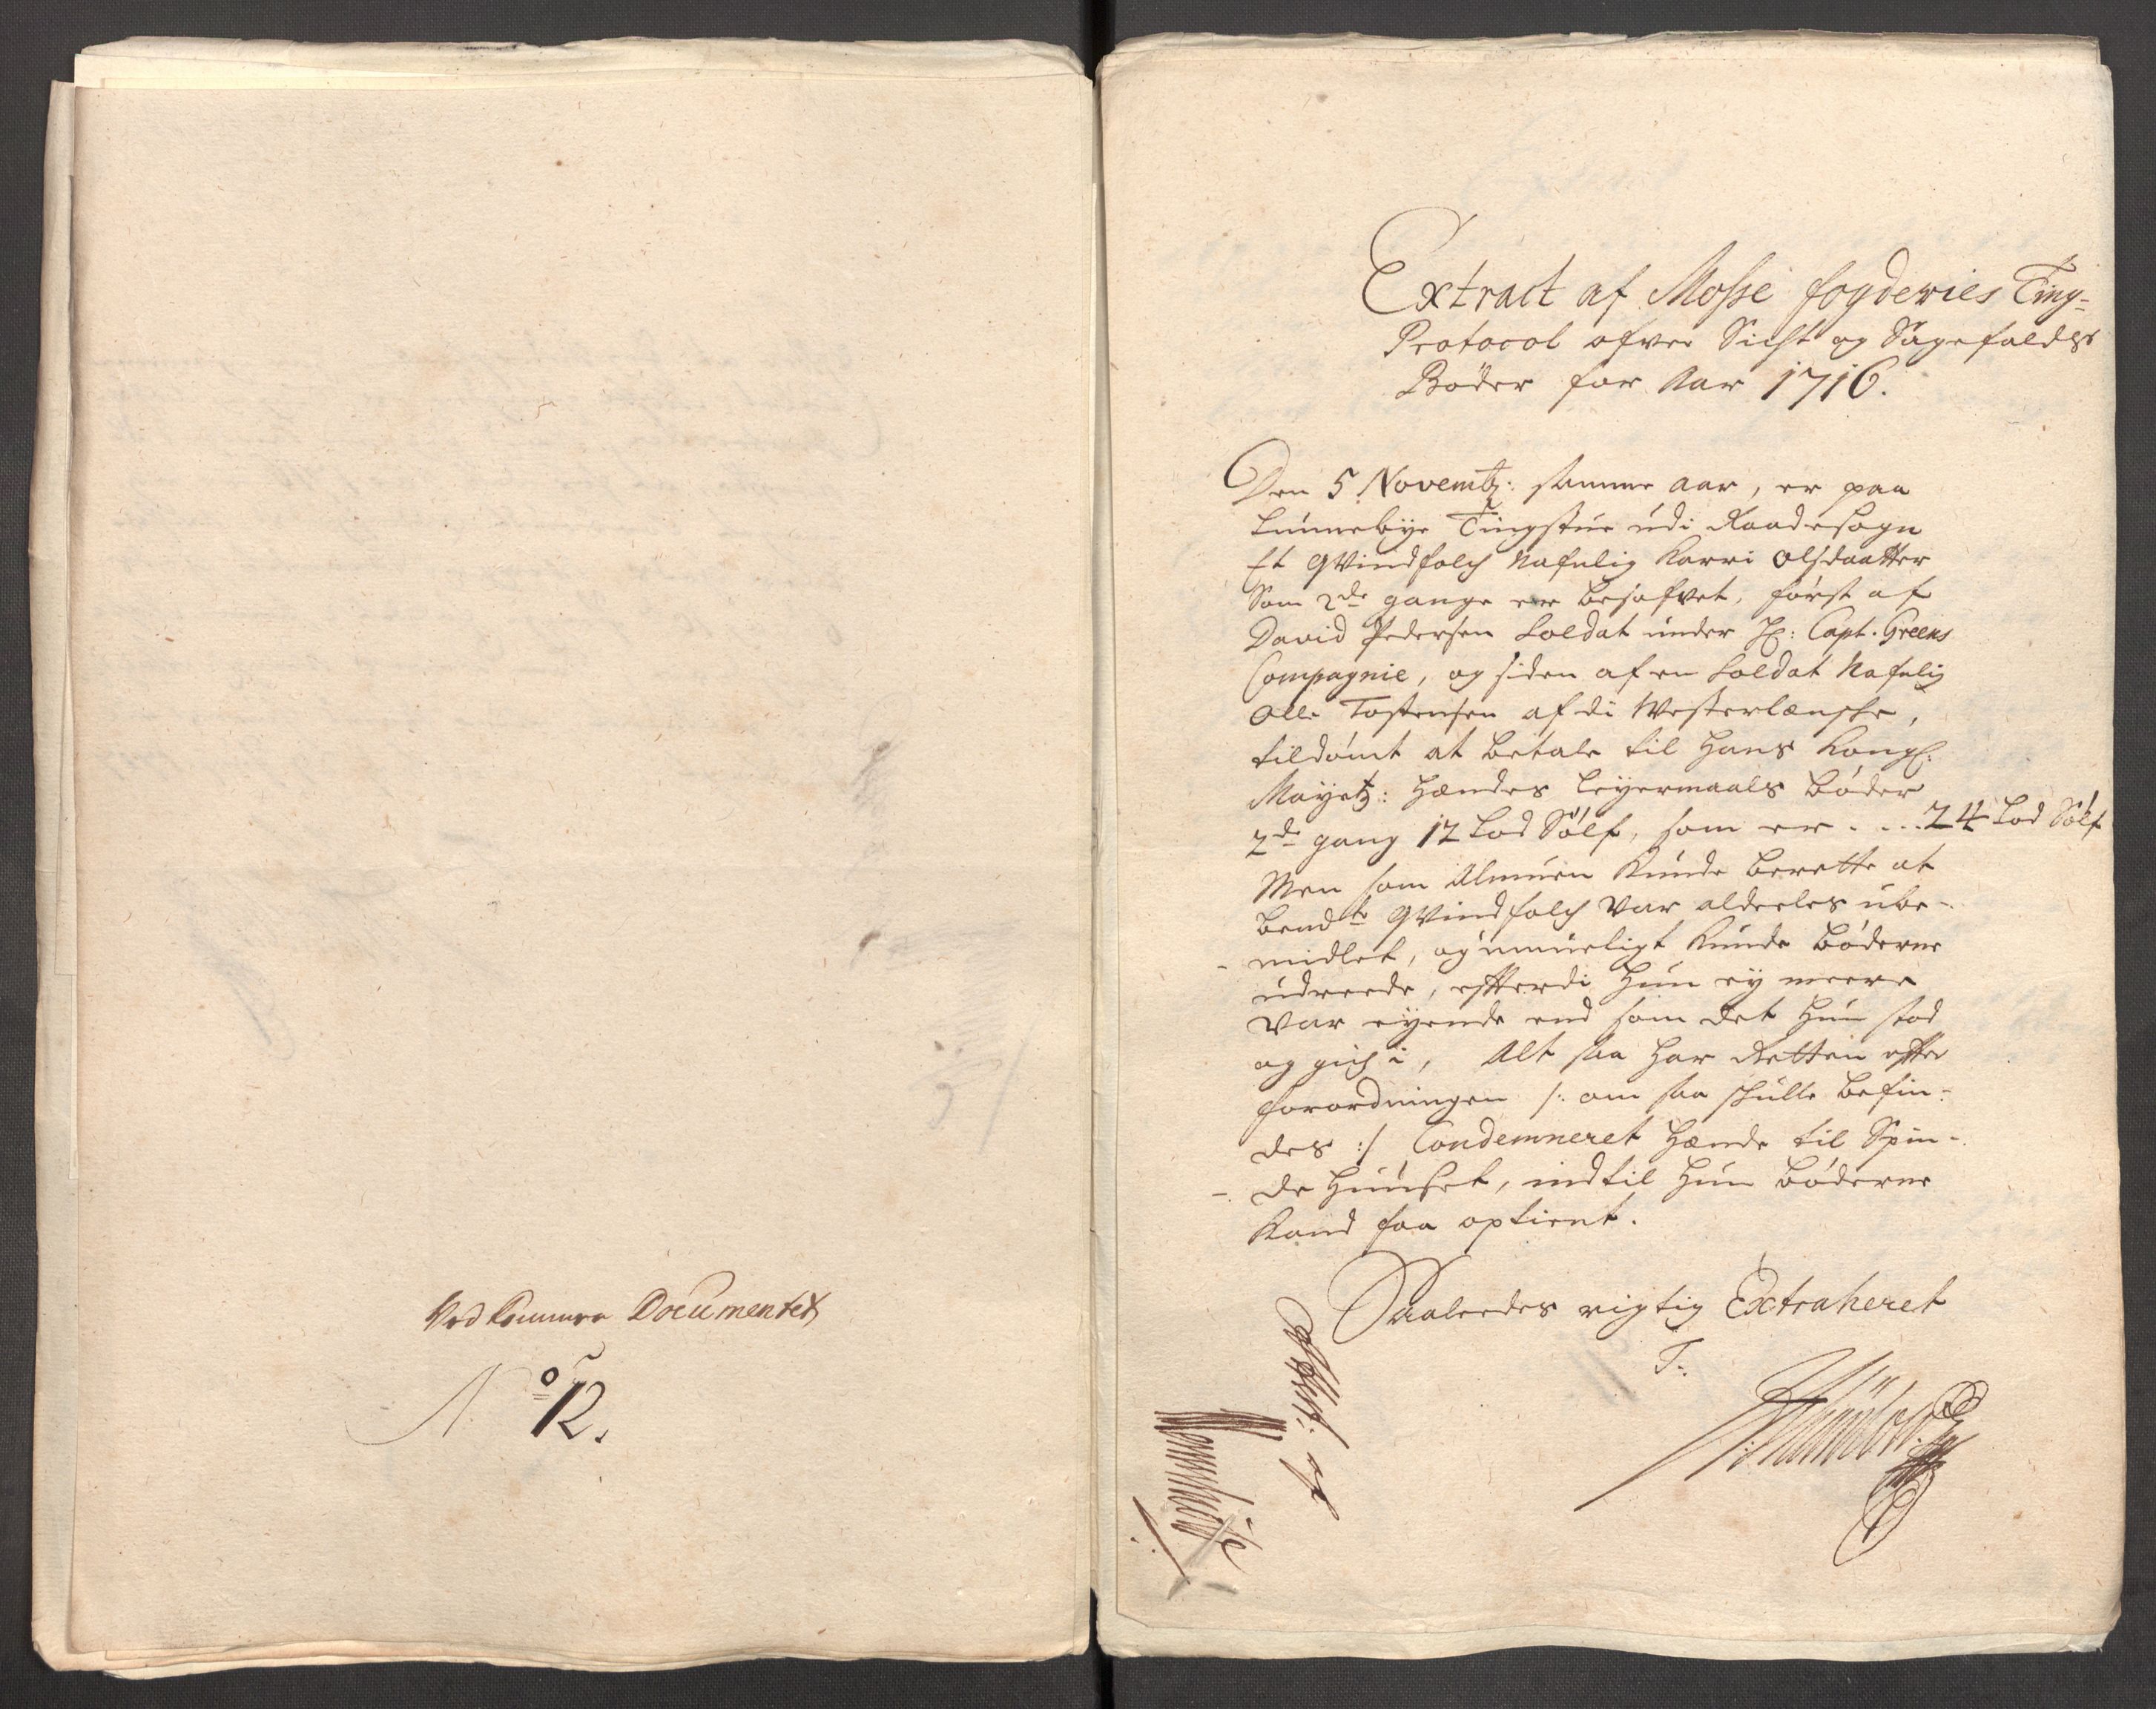 Vedkommer Documentet
No 12.
Extract af Mosse fogderies Ting-
Protocol ofver Sicht og Sagefalds
Bøder for Aar 1716.
Den 5 Novembr: samme aar, er paa
Tingstue udi Raadesogn
Et Qvindfolch Nafnlig Karri Olsdaatter
Som 2de gange er besofvet, først af
David Pedersen Soldat under Hr: Capt. Greens
Compagnie, og siden af en Soldat Nafnlig
Olle Tostensen af di Westerlænske,
tildømt at betale til Hans Kongl:
Mayetz: Hændes Leyermaals bøder
2de gang 12 Lod Sølf, som er . . . 24 Lod Sølf
Men som Almuen kunde berette at
bemdte Qvindfolch var aldeeles ube-
midlet, og umueligt kunde bøderne
udreede, efterdi hun ey meere
var eyende end som det hun stod
og gich i, Alt saa har Retten efter
forordningen /: om saa skulle befin-
des :/ Condemneret hænde til Spin-
de Huuset, indtil hun bøderne
kand faa optient.
Saaleedes rigtig Extraheret
T:
af